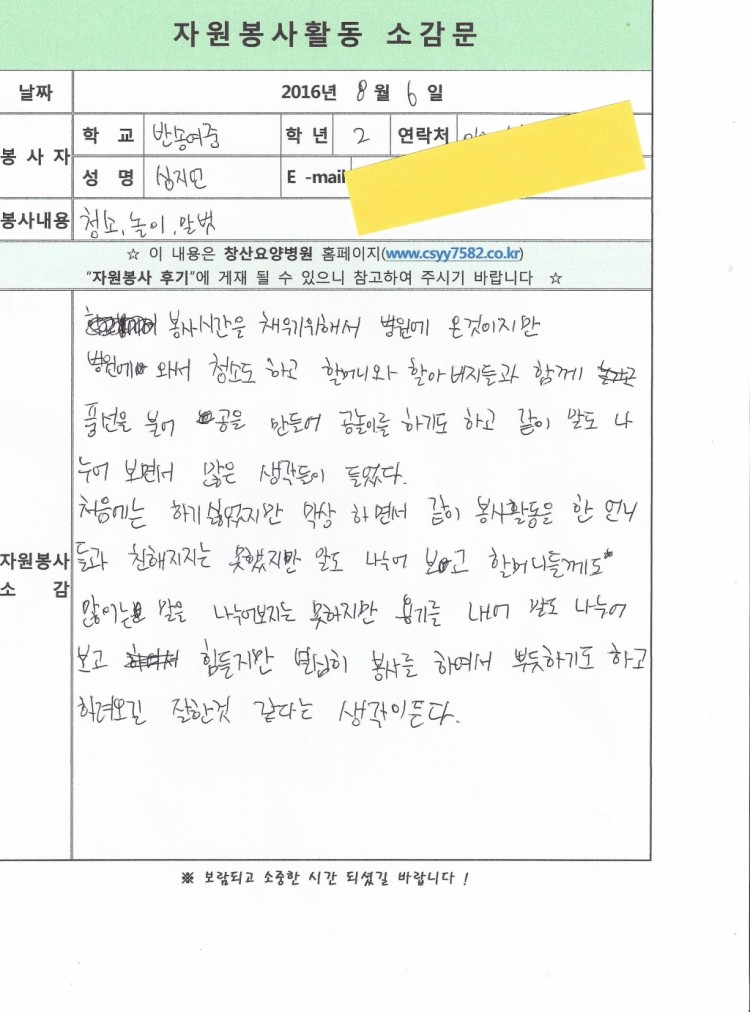 자원봉사활동 소감문
날짜 2016년 8월 6일
봉사자 학교 반송여중 학년 2 연락처
성명 심지민 E-mail
봉사내용 청소, 놀이, 말벗
☆ 이 내용은 창산요양병원 홈페이지(www.csyy7582.co.kr)
"자원봉사 후기"에 게재 될 수 있으니 참고하여 주시기 바랍니다 ☆
봉사시간을 채우기위해서 병원에 온것이지만
병원에 와서 청소도 하고 할머니와 할아버지들과 함께
풍선을 불어 공을 만들어 공놀이를 하기도 하고 같이 말도 나
누어 보면서 많은 생각들이 들었다.
처음에는 하기싫었지만 막상 하면서 같이 봉사활동을 한 언니
자원봉사 들과 친해지지는 못했지만 말도 나누어 보고 할머니들께도
소감 많이는 말을 나누어보지는 못하지만 용기를 내어 말도 나누어
보고 힘들지만 열심히 봉사를 하여서 뿌듯하기도 하고
하려오길 잘한것 같다는 생각이든다.
※ 보람되고 소중한 시간 되셨길 바랍니다 !